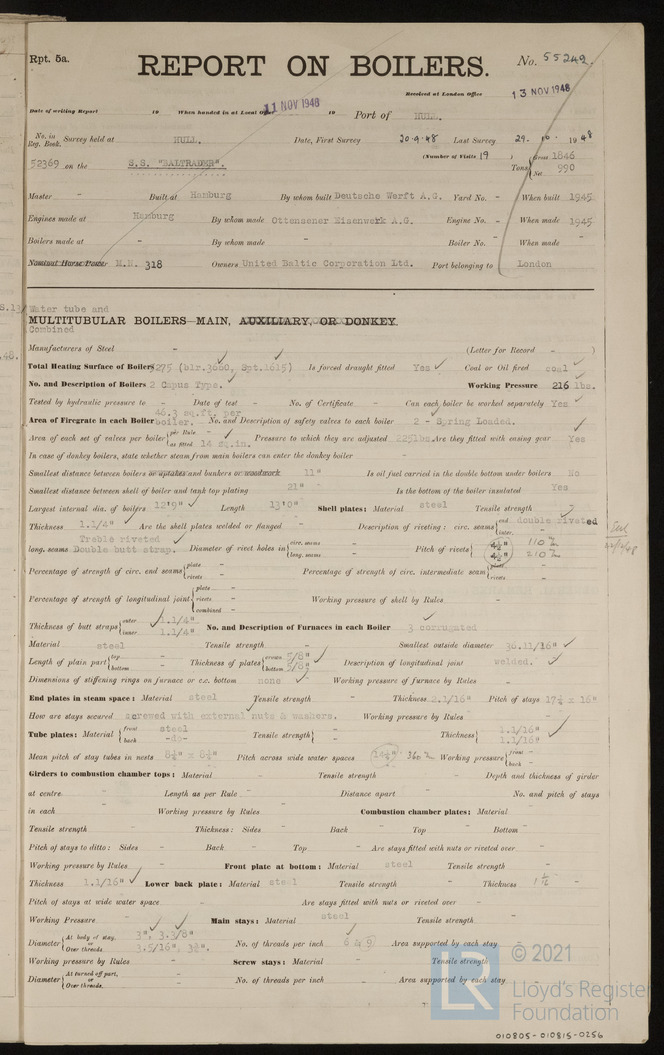 Rpt. 5a.
REPORT ON BOILERS.
No. 55242.
Received at London Office
13 NOV 1948
Date of writing Report 19 When handed in at Local Office 11 NOV 1948 19 Port of HULL.
No. in Reg. Book. Survey held at HULL. Date, First Survey 20.9.48 Last Survey 29. 10. 1948
52369 on the S.S. "BALTRADER". (Number of Visits 19 ) Tons Gross 1846 Net 990
Master - Built at Hamburg By whom built Deutsche Werft A.G. Yard No. - When built 1945
Engines made at Hamburg By whom made Ottensener Eisenwerk A.G. Engine No. - When made 1945
Boilers made at - By whom made - Boiler No. - When made -
Nominal Horse Power M.N. 318 Owners United Baltic Corporation Ltd. Port belonging to London
Water tube and
MULTITUBULAR BOILERS—MAIN, AUXILIARY, OR DONKEY
Combined
Manufacturers of Steel - (Letter for Record - )
Total Heating Surface of Boilers (Blr.3660, Spt.1615) Is forced draught fitted Yes Coal or Oil fired coal
No. and Description of Boilers 2 Capus Type. Working Pressure 216 lbs.
Tested by hydraulic pressure to - Date of test - No. of Certificate - Can each boiler be worked separately Yes
46.3 sq.ft. per
Area of Firegrate in each Boiler boiler. No. and Description of safety valves to each boiler 2 - Spring Loaded.
Area of each set of valves per boiler per Rule - as fitted 14 sq.in. Pressure to which they are adjusted 225lbs. Are they fitted with easing gear Yes
In case of donkey boilers, state whether steam from main boilers can enter the donkey boiler -
Smallest distance between boilers or uptakes and bunkers or woodwork 11" Is oil fuel carried in the double bottom under boilers No
Smallest distance between shell of boiler and tank top plating 21" Is the bottom of the boiler insulated Yes
Largest internal dia. of boilers 12'9" Length 13'0" Shell plates: Material steel Tensile strength -
Thickness 1.1/4" Are the shell plates welded or flanged - Description of riveting: circ. seams end double riveted inter. -
Treble riveted
long. seams Double butt strap. Diameter of rivet holes in circ. seams - long. seams - Pitch of rivets 4½" 4½"
Percentage of strength of circ. end seams plate - rivets - Percentage of strength of circ. intermediate seam plate - rivets -
Percentage of strength of longitudinal joint plate - rivets - combined - Working pressure of shell by Rules -
Thickness of butt straps outer 1.1/4" inner 1.1/4" No. and Description of Furnaces in each Boiler 3 corrugated
Material steel Tensile strength - Smallest outside diameter 36.11/16"
Length of plain part top - bottom - Thickness of plates crown 5/8" bottom 5/8" Description of longitudinal joint welded.
Dimensions of stiffening rings on furnace or c.c. bottom none Working pressure of furnace by Rules -
End plates in steam space: Material steel Tensile strength - Thickness 2.1/16" Pitch of stays 17½ x 16"
How are stays secured screwed with external nuts & washers. Working pressure by Rules -
Tube plates: Material front steel back -do- Tensile strength - Thickness 1.1/16" 1.1/16"
Mean pitch of stay tubes in nests 8½" x 8½" Pitch across wide water spaces 14½" Working pressure front - back -
Girders to combustion chamber tops: Material - Tensile strength - Depth and thickness of girder
at centre - Length as per Rule - Distance apart - No. and pitch of stays
in each - Working pressure by Rules - Combustion chamber plates: Material -
Tensile strength - Thickness: Sides - Back - Top - Bottom -
Pitch of stays to ditto: Sides - Back - Top - Are stays fitted with nuts or riveted over -
Working pressure by Rules - Front plate at bottom: Material steel Tensile strength -
Thickness 1.1/16" Lower back plate: Material steel Tensile strength - Thickness
Pitch of stays at wide water space - Are stays fitted with nuts or riveted over -
Working Pressure - Main stays: Material steel Tensile strength -
Diameter At body of stay, 3", 3.3/8" or Over threads 3.5/16", 3¾". No. of threads per inch 6 & 9 Area supported by each stay
Working pressure by Rules - Screw stays: Material - Tensile strength -
Diameter At turned off part, or Over threads - No. of threads per inch - Area supported by each stay -
LR
© 2021
Lloyd's Register
Foundation
010805-010815-0256